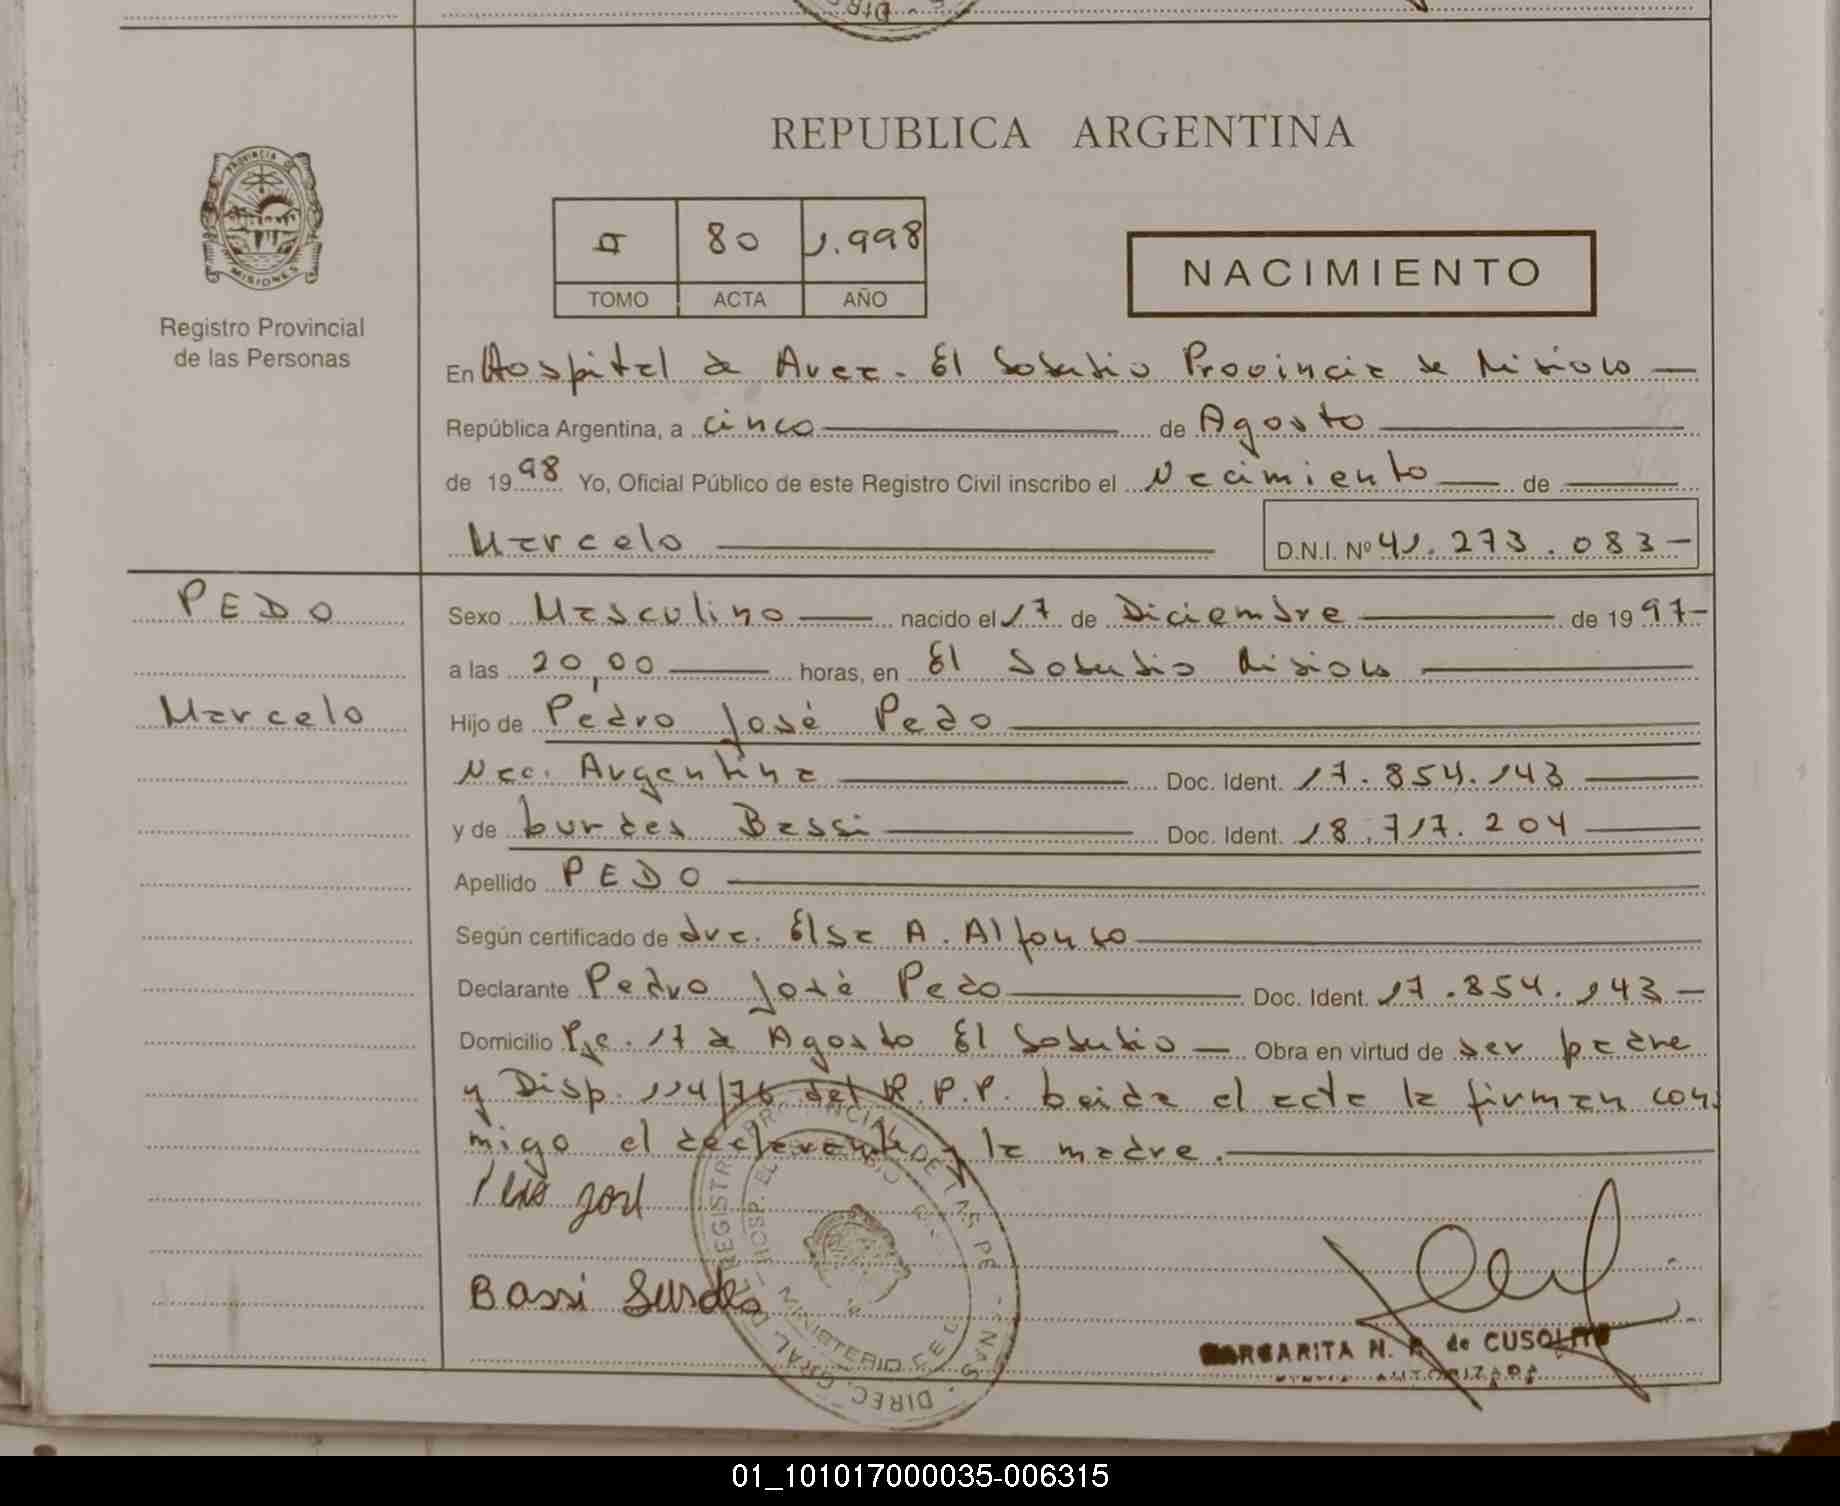 REPUBLICA ARGENTINA
PROVINCIA DE
MISIONES
Registro Provincial
de las Personas
80 1.998
TOMO ACTA AÑO
NACIMIENTO
En Hospital de Area. El Soberbio Provincia de Misiones
República Argentina, a cinco de Agosto
de 1998 Yo, Oficial Público de este Registro Civil inscribo el Nacimiento de
Marcelo D.N.I. Nº 41.273.083-
PEDO
Marcelo
Sexo Masculino nacido el 17 de Diciembre de 1997-
a las 20,00 horas, en El Soberbio Misiones
Hijo de Pedro José Pedo
Nac. Argentina Doc. Ident. 17.854.143
y de Lurdes Bassi Doc. Ident. 18.717.204
Apellido PEDO
Según certificado de dra. Elsa A. Alfonso
Declarante Pedro José Pedo Doc. Ident. 17.854.143-
Domicilio Pje. 17 de Agosto El Soberbio - Obra en virtud de ser padre
y Disp. 114/76 del R.P.P. Leida el acta la firman con
migo el declarante y la madre.
Bassi Lurdes
MARGARITA N. de CUSOLITO
AUTORIZADA
01_101017000035-006315